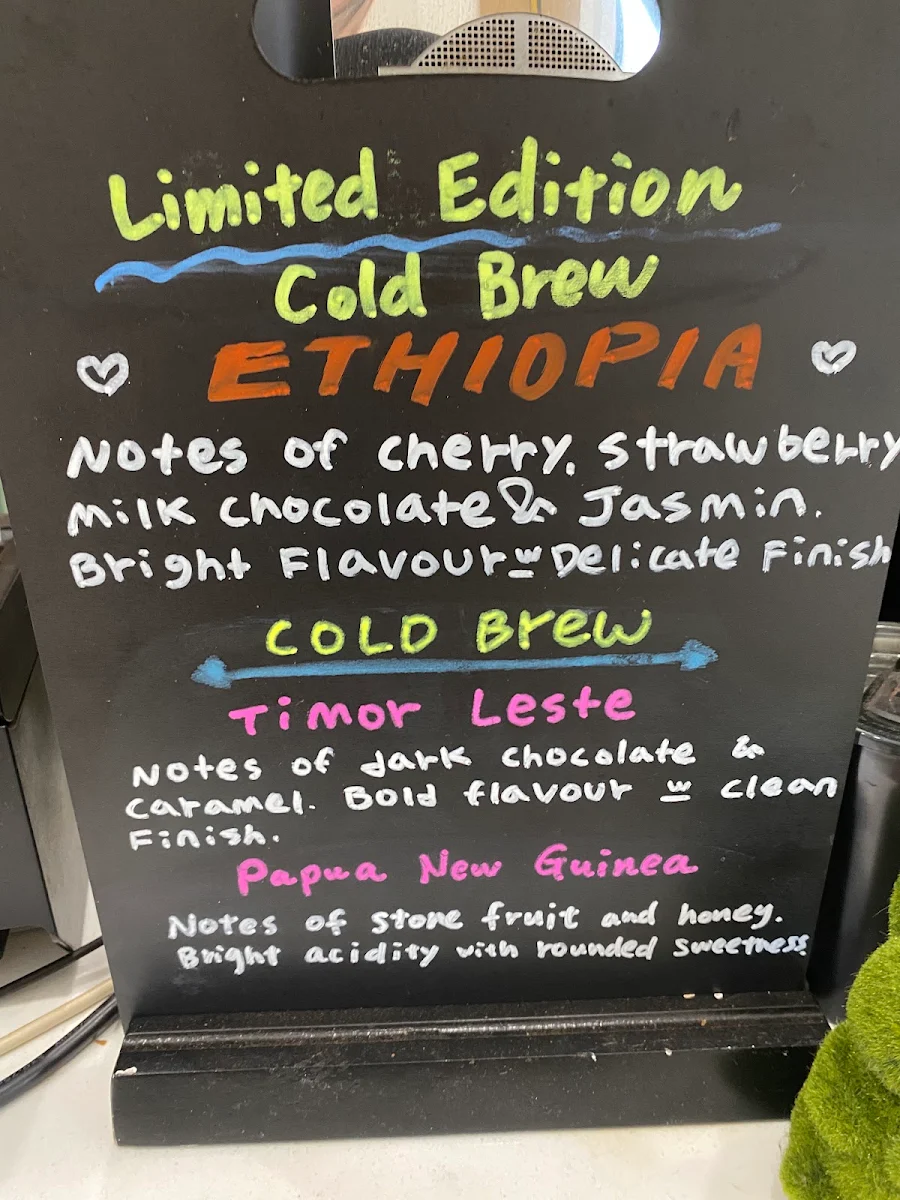 Limited Edition
Cold Brew
ETHIOPIA
Notes of cherry, strawberry
Milk chocolate & Jasmin.
Bright Flavour w Delicate Finish
COLD Brew
Timor Leste
Notes of dark chocolate &
caramel. Bold flavour w clean
Finish.
Papua New Guinea
Notes of stone fruit and honey.
Bright acidity with rounded sweetness.